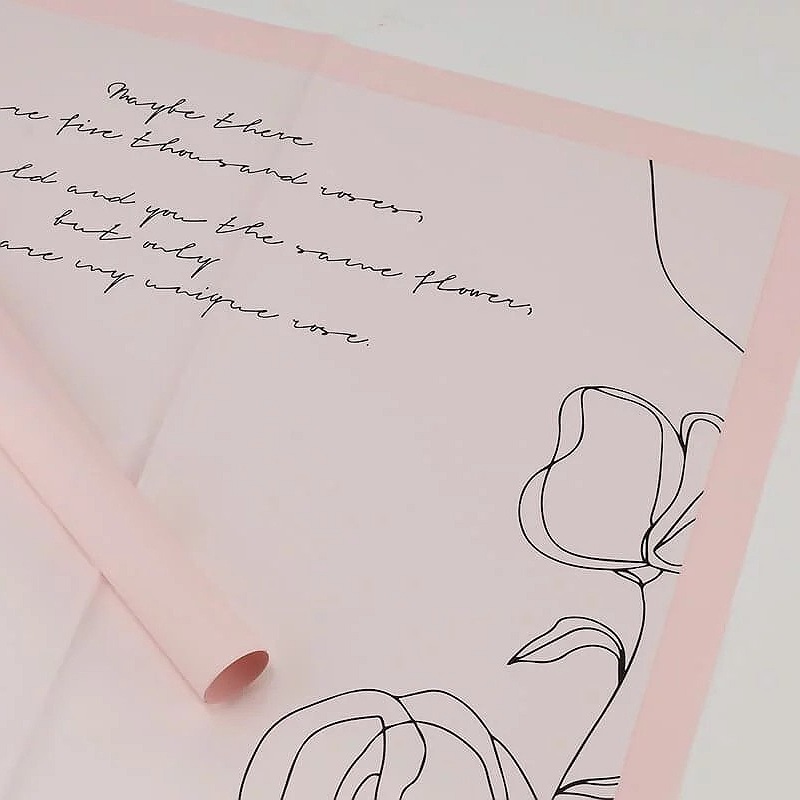 Maybe there
re five thousand roses,
ld and you the same flower,
but only
are my unique rose.